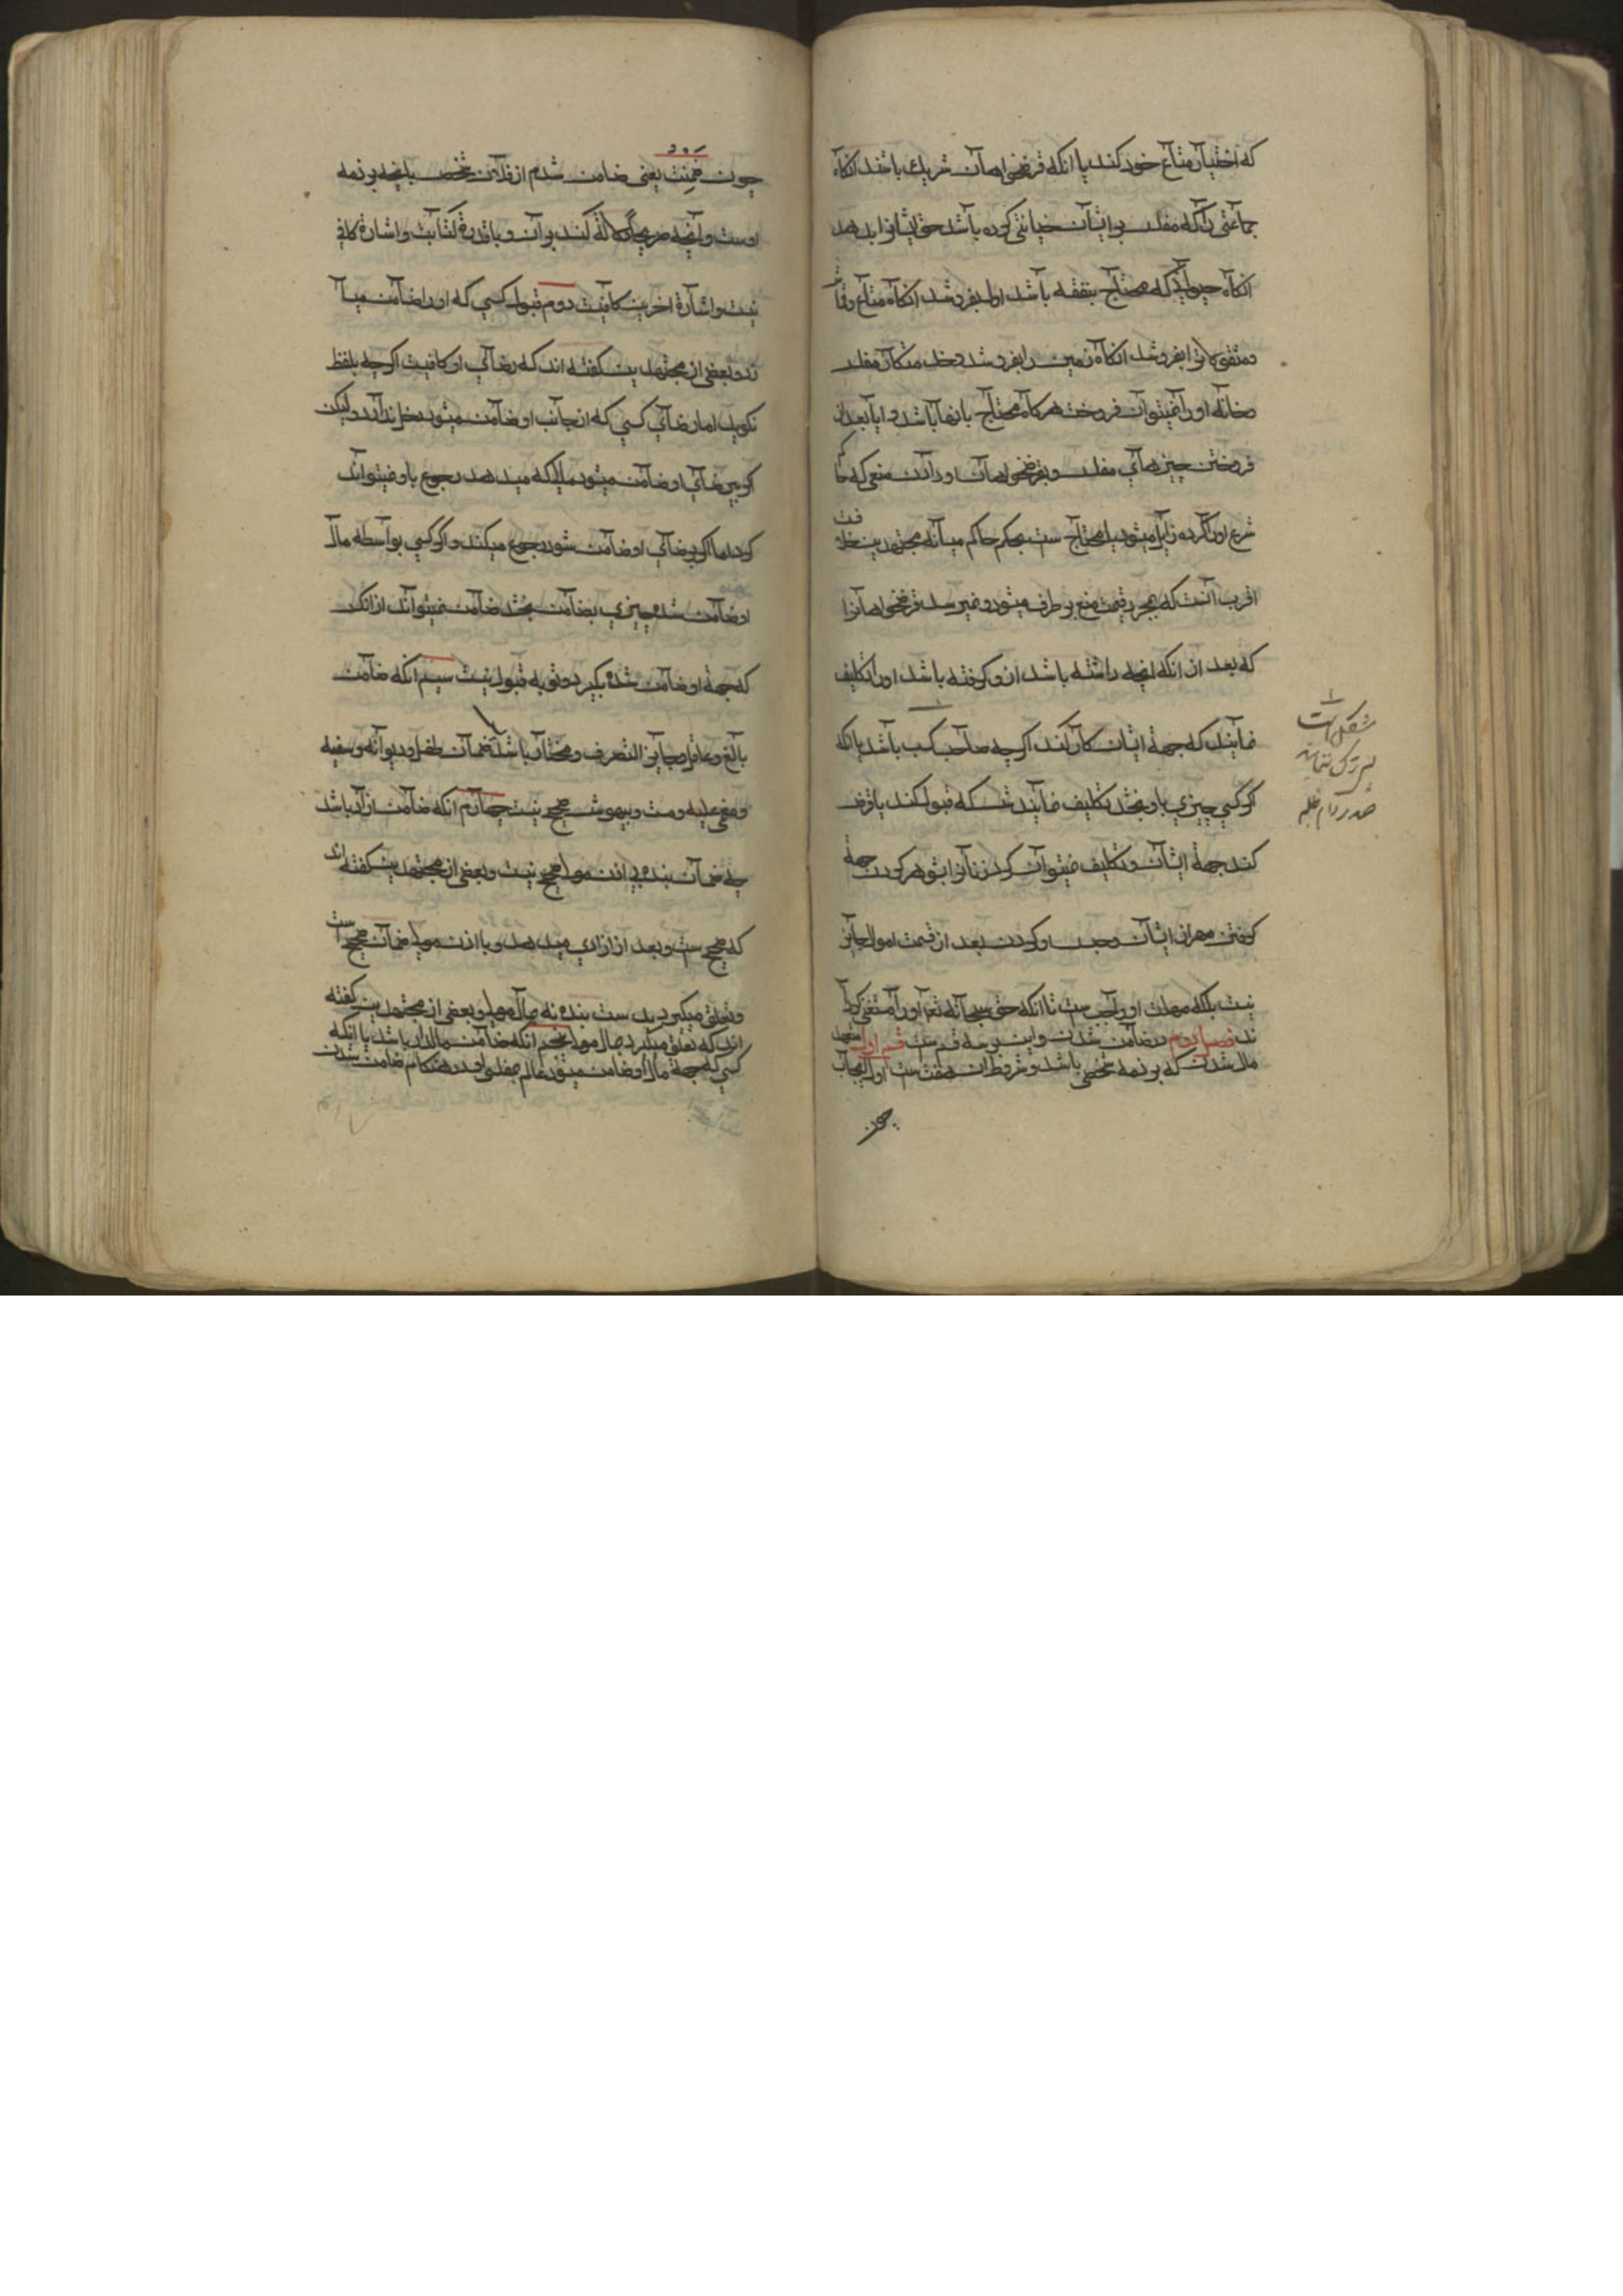 که اختیار متاع خود کند یا انکه قرضخواهان شریك باشند انکاه
جماعتی را که مفلس بر ایشان خیانتی کرده باشد حق ایشانرا بدهد
انکاه حیوانی که محتاج بنفقه باشد اول بفروشد انکاه متاع وقماش
ومنقولاترا بفروشد انکاه زمین را بفروشد ودخل مسکن مفلس
وخانه اورا نمیتوان فروخت هرکاه محتاج بانها باشد وایا بعد از
فروختن چیزهای مفلس وبقرضخواهان او دادن منعی که حاکم
شرع اورا کرده زایل میشود یا محتاج ست بحکم حاکم میانه مجتهدین خلافست
اقرب آنست که بمجرد قسمت منع برطرف میشود ونمیرسد قرضخواهانرا
که بعد از انکه انچه داشته باشد از و کرفته باشد اورا تکلیف
نمایند که جهة ایشان کار کند اکرچه صاحب کسب باشد یا انکه
اکر کسی چیزی باو بخشد تکلیف نمایندش که قبول کند یا قرض
کند جهة ایشان وتکلیف نمیتوان کرد زنانرا بشوهر کردن جهة
کرفتن مهر از ایشان وحبس او کردن بعد از قسمت اموال جایز
نیست بلکه مهلت او واجب ست تا انکه حق سبحانه تعالی اورا مستغنی کردا
ند فصل دوم در ضامن شدن واین بر سه قسم ست قسم اول متعهد
مال شدن که بر ذمه شخصی باشد وشروط ان هفت ست اول ایجاب
چون
مشکل است
صدر دام ظله
چون ضمنت یعنی ضامن شدم از فلان شخص بانچه بر ذمه
اوست وانچه صریحا دلالة کند بر آن وبا قدرة کتابت واشارة کافی
نیست واشارة اخرس کافیست دوم قبول کسی که اورا ضامن میبا
ند وبعضی از مجتهدین کفته اند که رضای او کافیست اکرچه بلفظ
نکوید اما رضای کسی که از جانب او ضامن میشود دخل ندارد ولیکن
اکر بیرضای او ضامن میشود مالیکه میدهد رجوع باو نمیتواند
کرد اما اکر برضای او ضامن شود رجوع میکند واکر کسی بواسطه مال
او ضامن شده چیزی بضامن بخشد ضامن نمیتواند از انکس
که جهة او ضامن شده بکیرد وتوبه قبول نیست سیم انکه ضامن
بالغ وعاقل وجایز التصرف ومختار باشد پس ضمان طفل ودیوانه وسفیه
ومغمی علیه ومست وبیهوش صحیح نیست چهارم انکه ضامن ازاد باشد
چه ضمان بنده بی اذن مولی صحیح نیست وبعضی از مجتهدین کفته اند
که صحیح ست وبعد از ازادی میدهد وبا اذن مولی ضمان صحیح است
وتعلق میکیرد بد ست بنده نه بمال مولی وبعضی از مجتهدین کفته
اند که تعلق میکیرد بمال مولی پنجم انکه ضامن مالدار باشد یا انکه
کسی که جهة مال او ضامن میشود عالم بمفلسی او در هنکام ضامن شدن